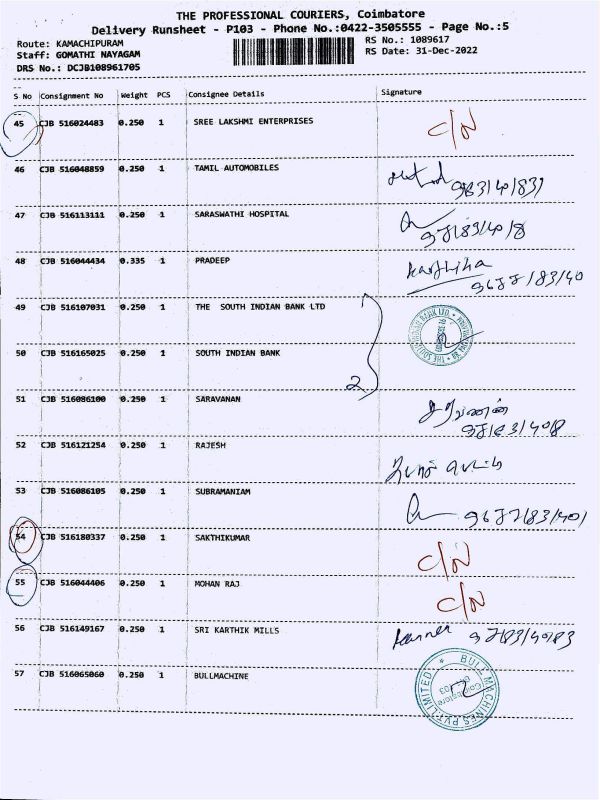 THE PROFESSIONAL COURIERS, Coimbatore
Delivery Runsheet - P103 - Phone No.:0422-3505555 - Page No.:5
Route: KAMACHIPURAM
RS No.: 1089617
Staff: GOMATHI NAYAGAM
RS Date: 31-Dec-2022
DRS No.: DCJB108961705
S No Consignment No Weight PCS Consignee Details Signature
45 CJB 516024483 0.250 1 SREE LAKSHMI ENTERPRISES C/N
46 CJB 516048859 0.250 1 TAMIL AUTOMOBILES
47 CJB 516113111 0.250 1 SARASWATHI HOSPITAL
48 CJB 516044434 0.335 1 PRADEEP Karthika
49 CJB 516107031 0.250 1 THE SOUTH INDIAN BANK LTD
50 CJB 516165025 0.250 1 SOUTH INDIAN BANK
2
51 CJB 516086100 0.250 1 SARAVANAN சரவணன்
52 CJB 516121254 0.250 1 RAJESH
53 CJB 516086105 0.250 1 SUBRAMANIAM
54 CJB 516180337 0.250 1 SAKTHIKUMAR C/N
55 CJB 516044406 0.250 1 MOHAN RAJ C/N
56 CJB 516149167 0.250 1 SRI KARTHIK MILLS
57 CJB 516065060 0.250 1 BULLMACHINE
BULL MACHINES PVT LIMITED